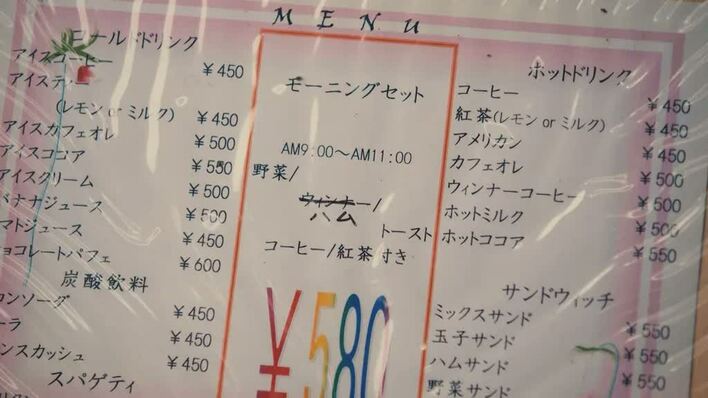 MENU
コールドドリンク
アイスコーヒー ¥450
アイスティー
(レモン or ミルク) ¥450
アイスカフェオレ ¥500
アイスココア ¥550
アイスクリーム ¥500
バナナジュース ¥500
トマトジュース ¥450
チョコレートパフェ ¥600
炭酸飲料
ロンソーダ ¥450
ーラ ¥450
ンスカッシュ ¥450
スパゲティ
モーニングセット
AM9:00～AM11:00
野菜/
ウィンナー/
ハム
トースト
コーヒー/紅茶付き
¥580
ホットドリンク
コーヒー ¥450
紅茶(レモン or ミルク) ¥450
アメリカン ¥450
カフェオレ ¥500
ウィンナーコーヒー ¥500
ホットミルク ¥500
ホットココア ¥550
サンドウィッチ
ミックスサンド ¥550
玉子サンド ¥550
ハムサンド ¥550
野菜サンド